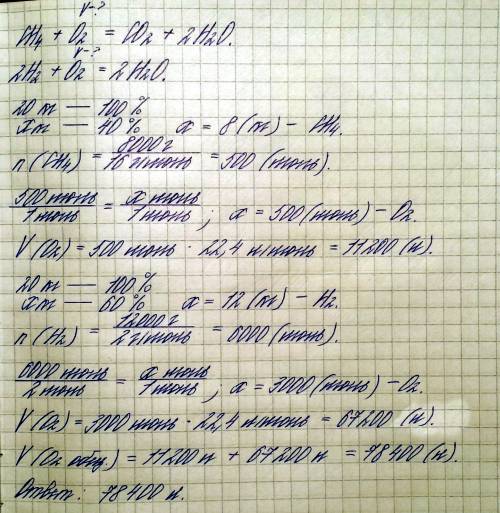 V-?
CH4 + O2 = CO2 + 2H2O.
V-?
2H2 + O2 = 2H2O.
20 кг — 100 %
x кг — 40 %    x = 8 (кг) – CH4.
n (CH4) = 8000 г / 16 г/моль = 500 (моль).
500 моль / 1 моль = x моль / 1 моль ; x = 500 (моль) – O2.
V (O2) = 500 моль · 22,4 л/моль = 11200 (л).
20 кг — 100 %
x кг — 60 %    x = 12 (кг) – H2.
n (H2) = 12000 г / 2 г/моль = 6000 (моль).
6000 моль / 2 моль = x моль / 1 моль ; x = 3000 (моль) – O2.
V (O2) = 3000 моль · 22,4 л/моль = 67200 (л).
V (O2 общ.) = 11200 л + 67200 л = 78400 (л).
Ответ: 78400 л.